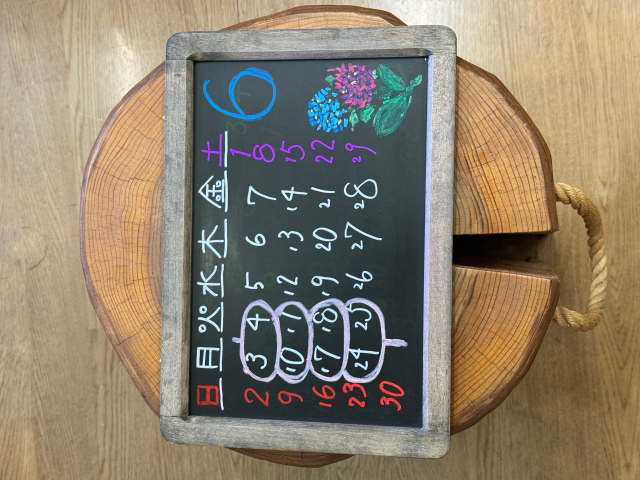 6
日 月 火 水 木 金 土
1
2 3 4 5 6 7 8
9 10 11 12 13 14 15
16 17 18 19 20 21 22
23 24 25 26 27 28 29
30